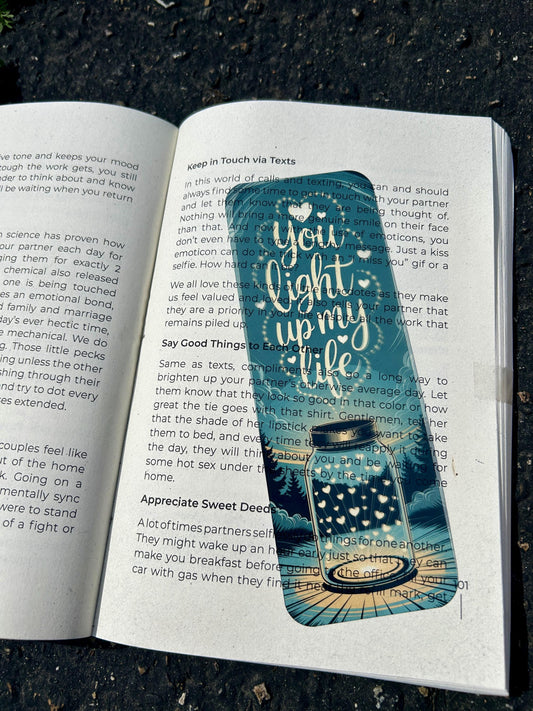 ve tone and keeps your mood
ough the work gets, you still
nder to think about and know
ll be waiting when you return
n science has proven how
our partner each day for
ging them for exactly 2
chemical also released
one is being touched
es an emotional bond,
d family and marriage
day's ever hectic time,
e mechanical. We do
g. Those little pecks
ing unless the other
shing through their
nd try to dot every
es extended.
couples feel like
ut of the home
k. Going on a
mentally sync
were to stand
of a fight or
Keep in Touch via Texts
In this world of calls and texting, you can and should
always find some time to get in touch with your partner
and let them know that they are being thought of.
Nothing will bring a more genuine smile on their face
than that. And now with the use of emoticons, you
don't even have to type a message. Just a kiss
emoticon can do the trick with an "I miss you" gif or a
selfie. How hard can
We all love these kinds of anecdotes as they make
us feel valued and loved. also tell your partner that
they are a priority in your life despite all the work that
remains piled up
Say Good Things to Each Other
Same as texts, compliments also go a long way to
brighten up your partner's otherwise average day. Let
them know that they look so good in that color or how
great the tie goes with that shirt. Gentlemen, tell her
that the shade of her lipstick want to take
them to bed, and every time they apply it during
the day, they will think about you and be waiting for
some hot sex under the sheets by the time you come
home.
Appreciate Sweet Deeds
A lot of times partners do things for one another.
They might wake up an hour early just so that they can
make you breakfast before going to the office or your
car with gas when they find it mark, get
101
You
light
up my
life